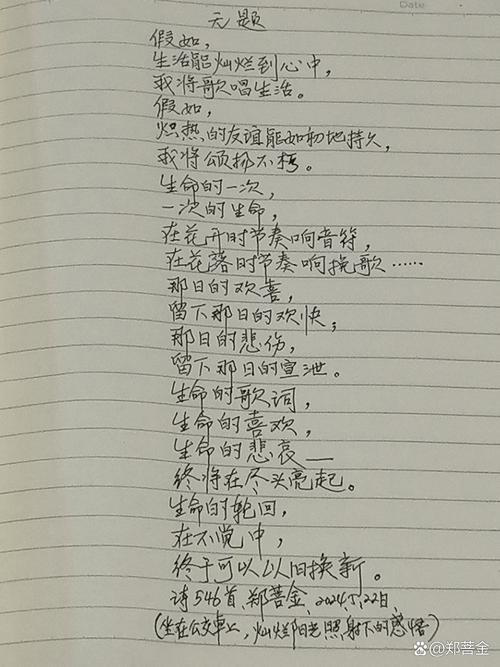 Date
无题
假如，
生活能灿烂到心中，
我将歌唱生活。
假如，
炽热的友谊能如初地持久，
我将颂扬不朽。
生命的一次，
一次的生命，
在花开时节奏响音符，
在花落时节奏响挽歌……
那日的欢喜，
留下那日的欢快；
那日的悲伤，
留下那日的宣泄。
生命的歌词，
生命的喜欢，
生命的悲哀——
终将在尽头亮起。
生命的轮回，
在不觉中，
终于可以以旧换新。
诗546首，郑菩金，2024.1.22日
（坐在公交车上，灿烂阳光照射下的感悟）
@郑菩金